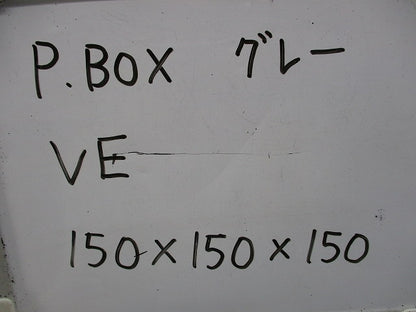 P.BOX グレー
VE
150×150×150